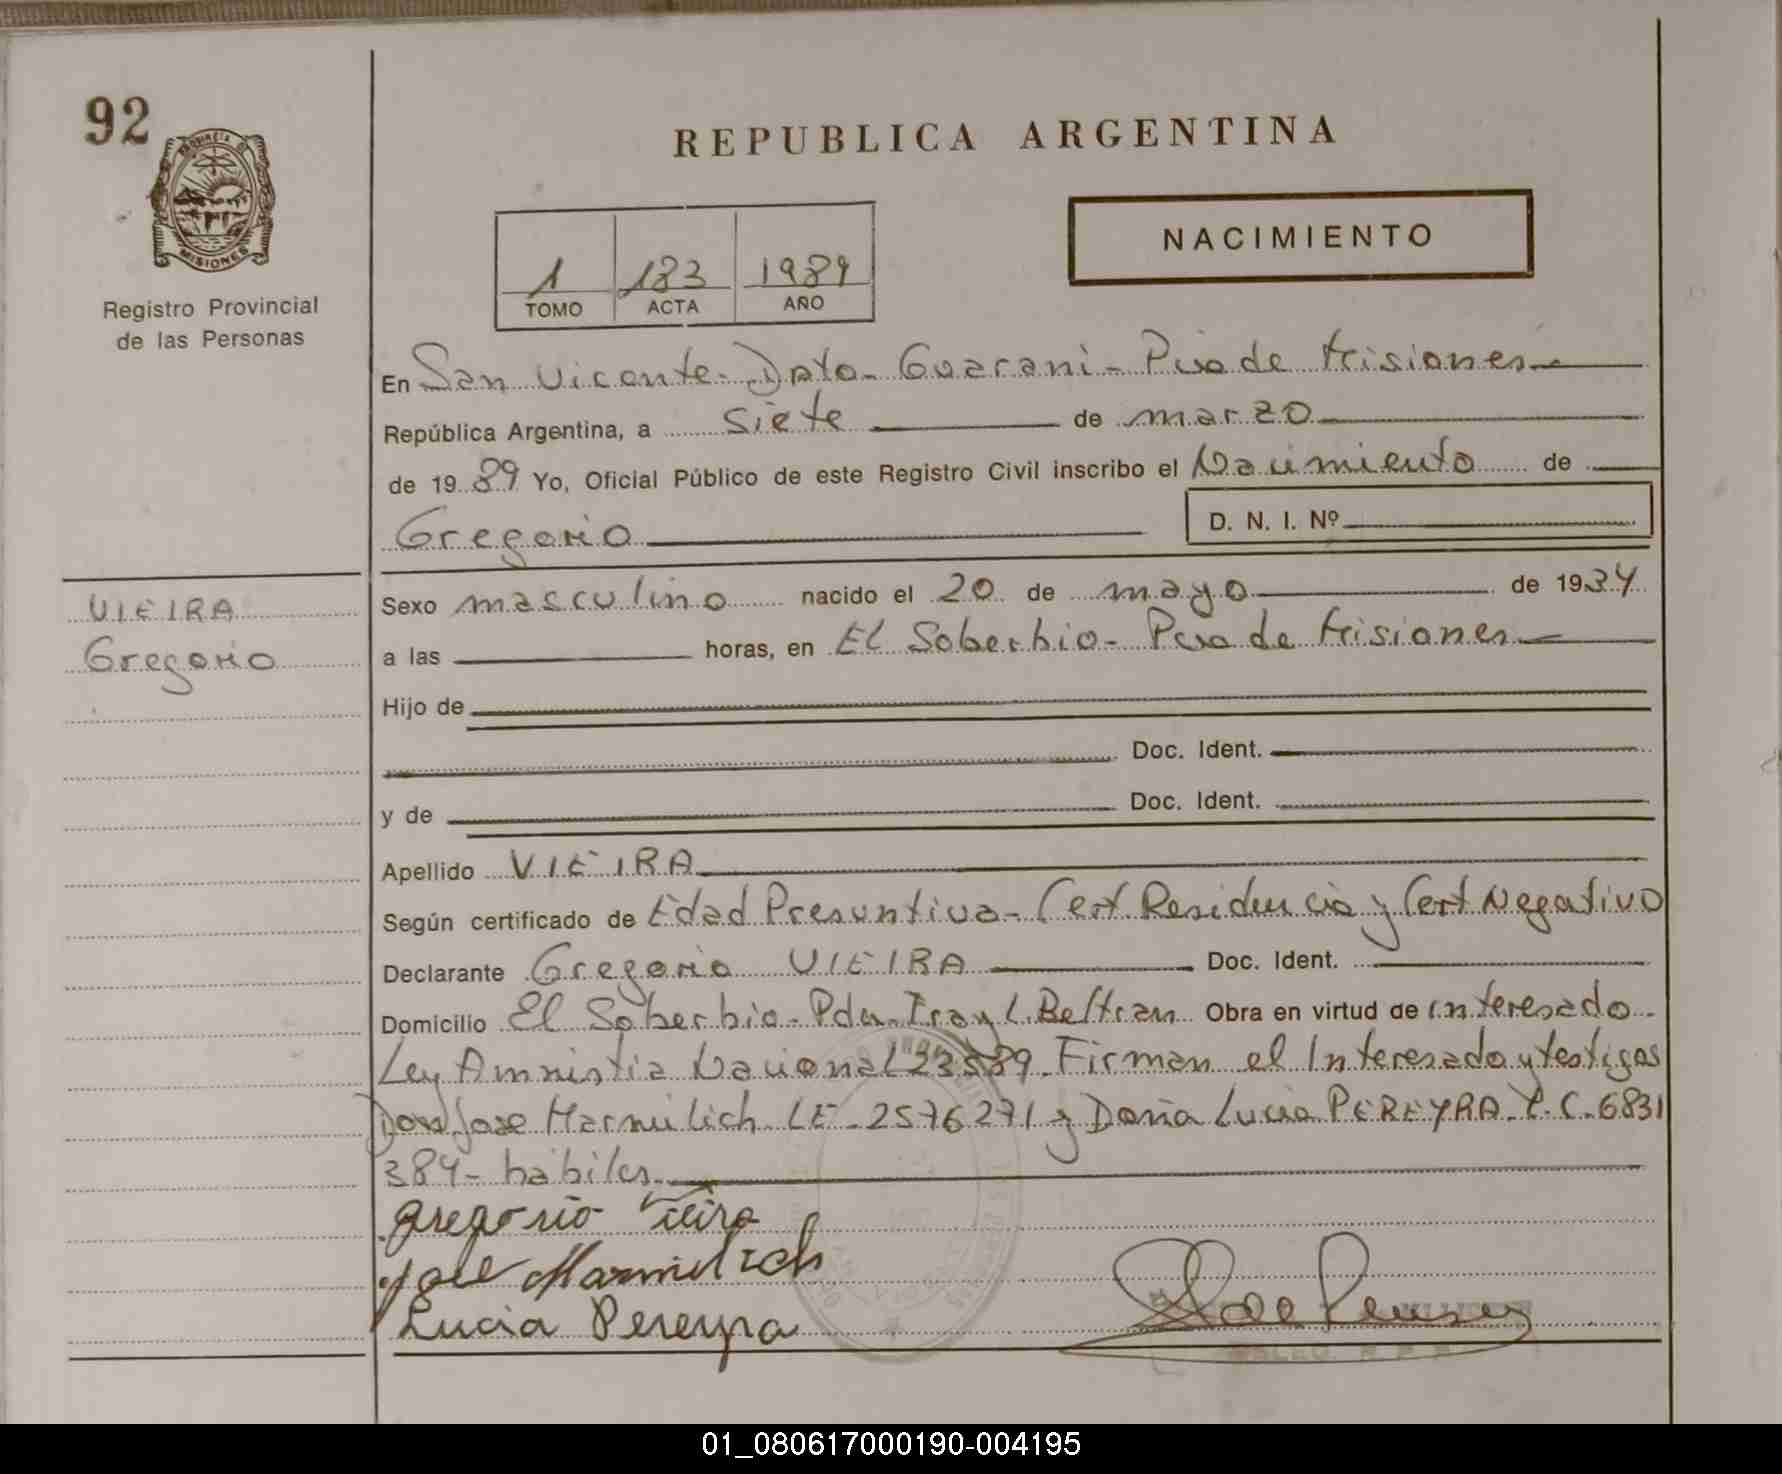 92
PROVINCIA DE
MISIONES
Registro Provincial
de las Personas
REPUBLICA ARGENTINA
NACIMIENTO
1 183 1989
TOMO ACTA AÑO
En San Vicente - Dpto - Guarani - Pcia de Misiones
República Argentina, a siete de marzo
de 1989 Yo, Oficial Público de este Registro Civil inscribo el Nacimiento de
Gregorio
D. N. I. Nº
VIEIRA
Gregorio
Sexo masculino nacido el 20 de mayo de 1934
a las horas, en El Soberbio - Pcia de Misiones
Hijo de
Doc. Ident.
y de Doc. Ident.
Apellido VIEIRA
Según certificado de Edad Presuntiva - Cert. Residencia y Cert Negativo
Declarante Gregorio VIEIRA Doc. Ident.
Domicilio El Soberbio - Pda. Fray L. Beltran Obra en virtud de interesado -
Ley Amnistia Nacional 23589. Firman el Interesado y testigos
Don Jose Marmilich LE - 2576271 y Doña Lucia PEREYRA - L.C. 6831
384 - habiles.
gregorio Vieira
Jose Marmilich
Lucia Pereyra
01_080617000190-004195